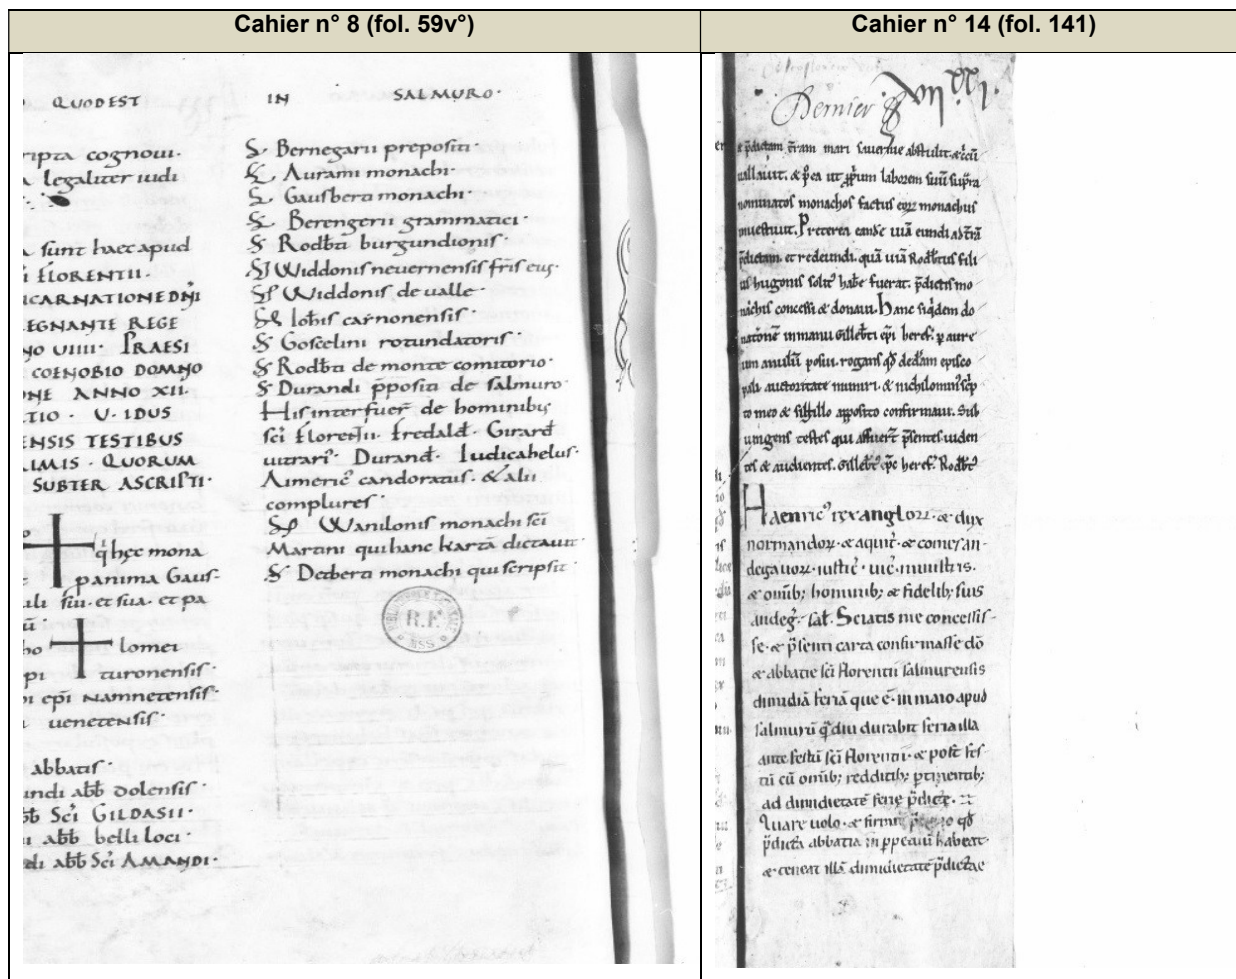 Cahier n° 8 (fol. 59v°)
QUODEST IN SALMURO·
ripta cognoui·
legaliter iudi
sunt haec apud
FLORENTII·
CARNATIONE DNI
EGNANTE REGE
NO UIIII· PRAESI
COENOBIO DOMNO
NE ANNO XII·
TIO · U· IDUS
ENSIS TESTIBUS
IMIS · QUORUM
SUBTER ASCRIPTI·
q hęc mona
panima Gaus-
uli sui· et sua· et pa
lomei
turonensis·
epi Namnetensis·
uenetensis·
abbatis·
undi abb dolensis·
bb Sci GILDASII·
abb belli loci·
di abb Sci AMANDI·
S Bernegarii prepositi·
S Aurami monachi·
S Gausberti monachi·
S Berengerii grammatici·
S Rodbti burgundionis·
S Widdonis neuernensis fris eius·
S Widdonis de ualle·
S Iohis carnonensis·
S Goscelini rotundatoris·
S Rodbti de monte comitorio·
S Durandi ppositi de salmuro·
His interfuer de hominibus
sci Florentii· fredald· Girard
uitrari· Durand· Iudicahelus·
Aimeric candoratus· & alii
complures·
S Wanilonis monachi sci
Martini qui hanc karta dictauit·
S Detberti monachi qui scripsit·
BIBLIOTHEQUE NATIONALE
R.F.
MSS
Cahier n° 14 (fol. 141)
Dernier
pdictam tram mari abstulit
uallauit· & laborem suu supra
nominatos monachos factus monachus
Preterea uia eundi ad tra
pdictam· et redeundi· qua uia Rodbtus fili
us hugonis solit habe fuerat· pdictis mo
nachis concessi & donaui· Hanc siqdem do
natione in manu Gillebti epi heref· p aure
um anulu posui· rogans qd episco
pali auctoritate muniri· & nichilominus scip
to meo & sigillo apposito confirmaui· Sub
testes qui affuert psentes uiden
tes & audientes· Gillebt epc heref· Rodbt
Haenric rex anglor· & dux
normandor· & aquit· & comes an-
degauor· iustic· uic· ministris·
& omib; hominib; & fidelib; suis
andeg· sat· Sciatis me concessis-
se· & psenti carta confirmasse do
& abbatie sci florentii salmurensis
dimidia feria que e· in maio apud
salmuru q diu durabit feria illa
ante festu sci florentii· & post fes
tu cu omib; redditib; ptinentib;
ad dimidietate ferie pdicte·
Quare uolo· & firmit pcipio qd
pdicta abbatia in ppetuu habeat·
& teneat illa dimidietate pdictae